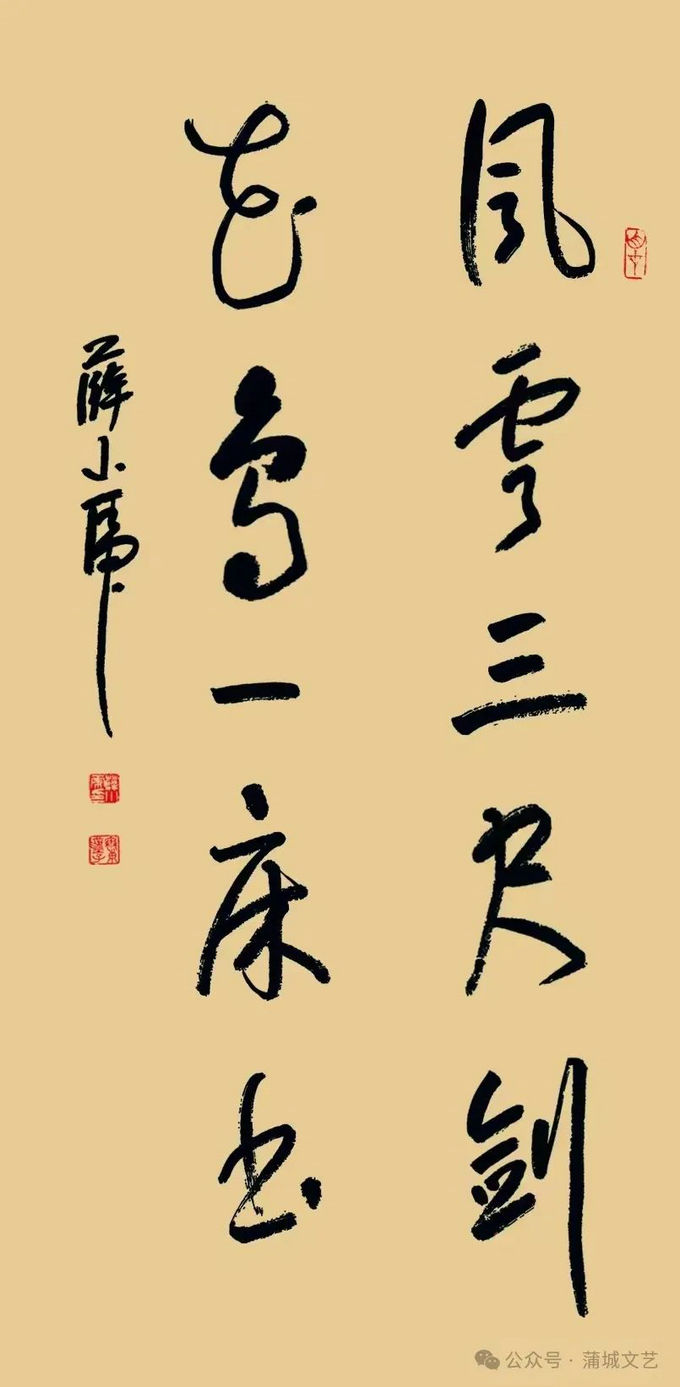 風雲三尺劍
花鳥一床書
薛小虎
公众号·蒲城文艺